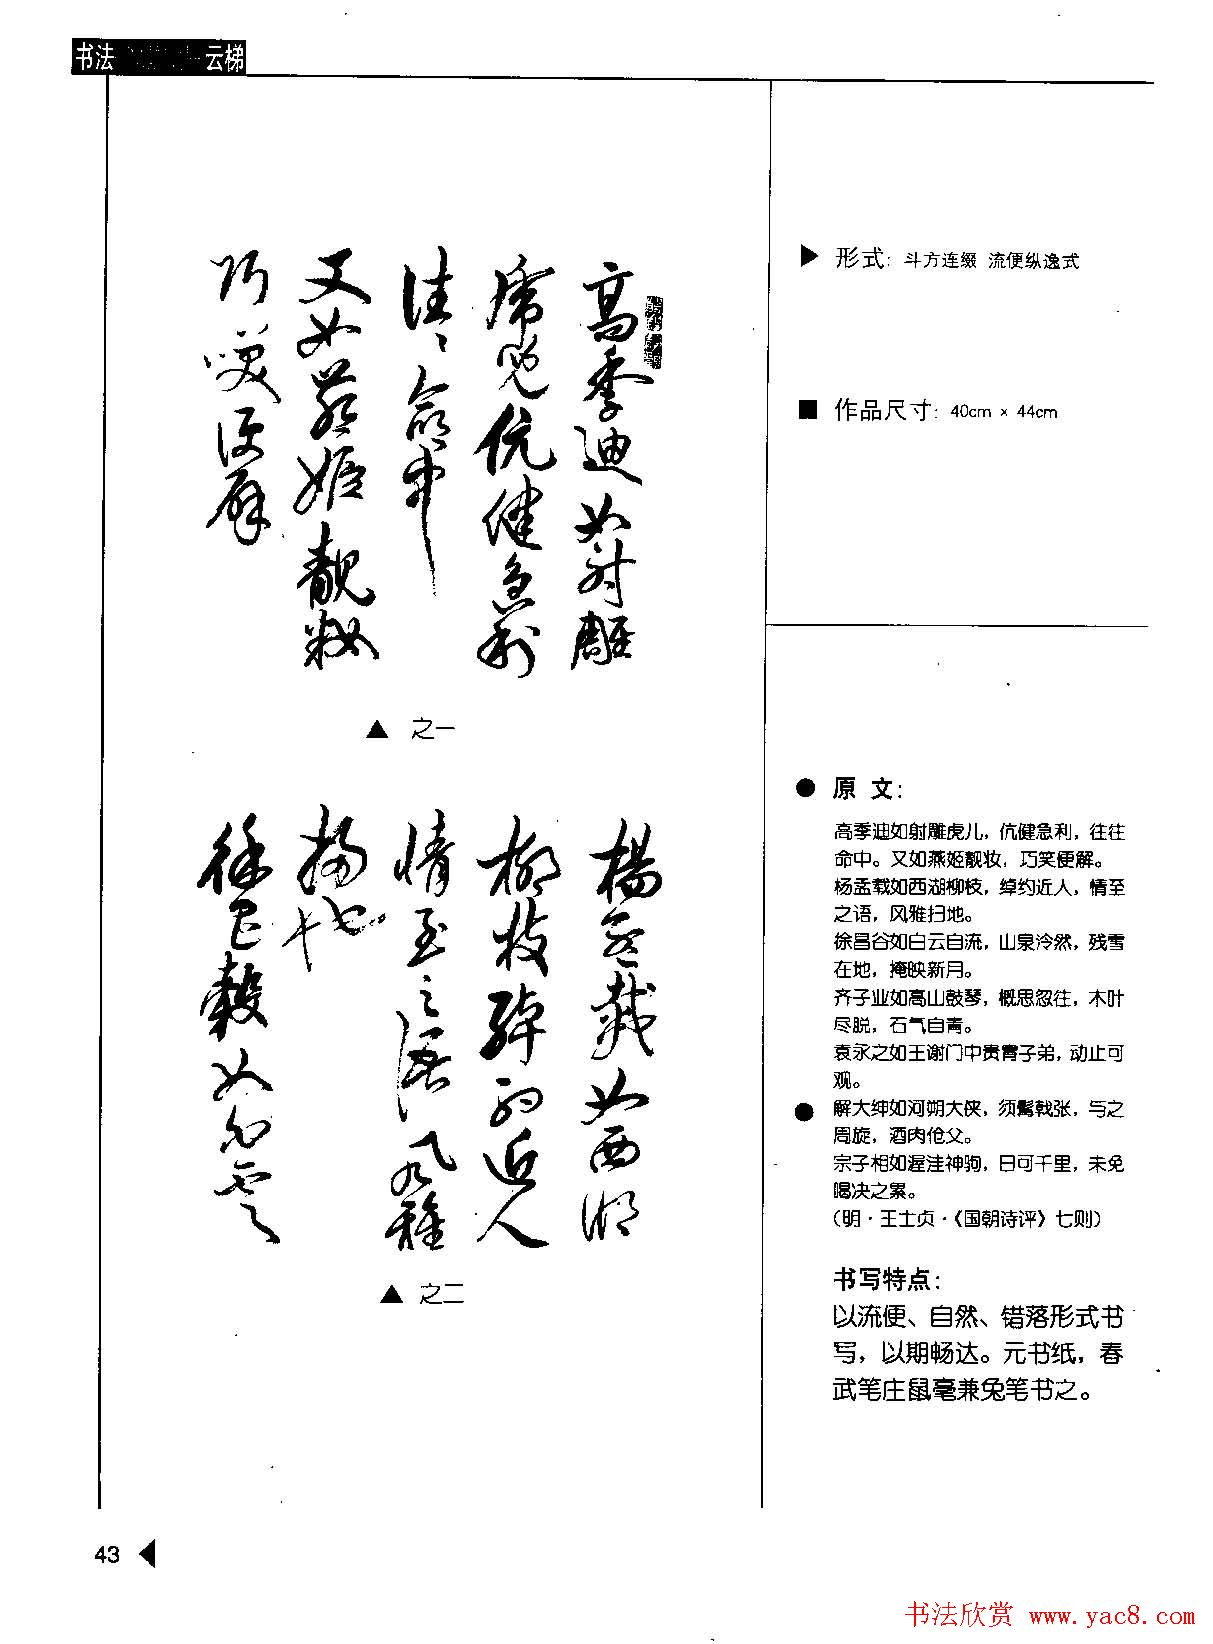 书法 云梯
高季迪如射雕
虎兒伉健急利
往〻命中
又如燕姬靚粧
巧笑便解
▲ 之一
楊孟載如西湖
柳枝綽約近人
情至之語風雅
掃地
徐昌穀如白雲
▲ 之二
▶ 形式：斗方连缀 流便纵逸式
■ 作品尺寸：40cm × 44cm
● 原 文：
高季迪如射雕虎儿，伉健急利，往往
命中。又如燕姬靓妆，巧笑便解。
杨孟载如西湖柳枝，绰约近人，情至
之语，风雅扫地。
徐昌谷如白云自流，山泉泠然，残雪
在地，掩映新月。
齐子业如高山鼓琴，概思忽往，木叶
尽脱，石气自青。
袁永之如王谢门中贵胄子弟，动止可
观。
● 解大绅如河朔大侠，须髯戟张，与之
周旋，酒肉伧父。
宗子相如渥洼神驹，日可千里，未免
啮决之累。
（明·王士贞·《国朝诗评》七则）
书写特点：
以流便、自然、错落形式书
写，以期畅达。元书纸，春
武笔庄鼠毫兼兔笔书之。
43 ◀
书法欣赏 www.yac8.com